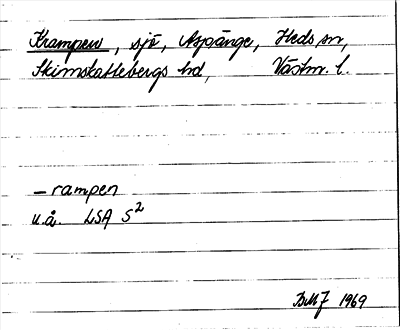 Krampen, sjö, Aspänge, Heds sn,
Skinnskattebergs hd, Västm. l.
– rampen
u.å. LSA S²
BMJ 1969